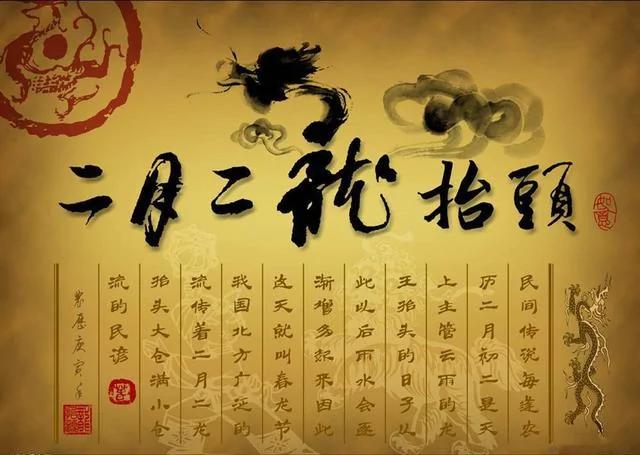 二月二龍抬頭
如意
民间传说每逢农
历二月初二是天
上主管云雨的龙
王抬头的日子从
此以后雨水会逐
渐增多起来因此
这天就叫春龙节
我国北方广泛的
流传着二月二龙
抬头大仓满小仓
流的民谚
農歷庚寅年